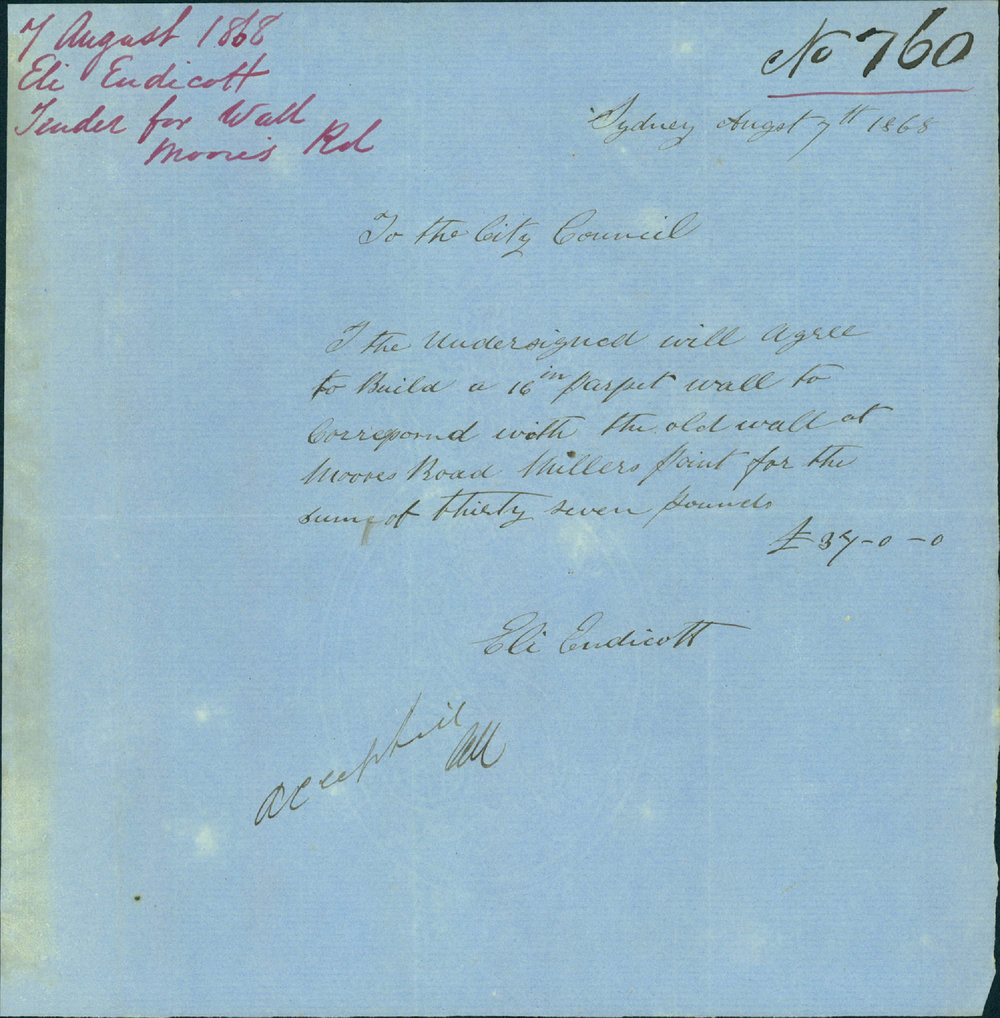 7 August 1868
Eli Endicott
Tender for Wall
Moores Rd
No 760
Sydney Augst 7th 1868
To the City Council
I the Undersigned will Agree
to Build a 16 in parpet wall to
Correpornd with the old wall at
Moores Road Millers point for the
sume of thirty seven pounds
£ 37-0-0
Eli Endicott